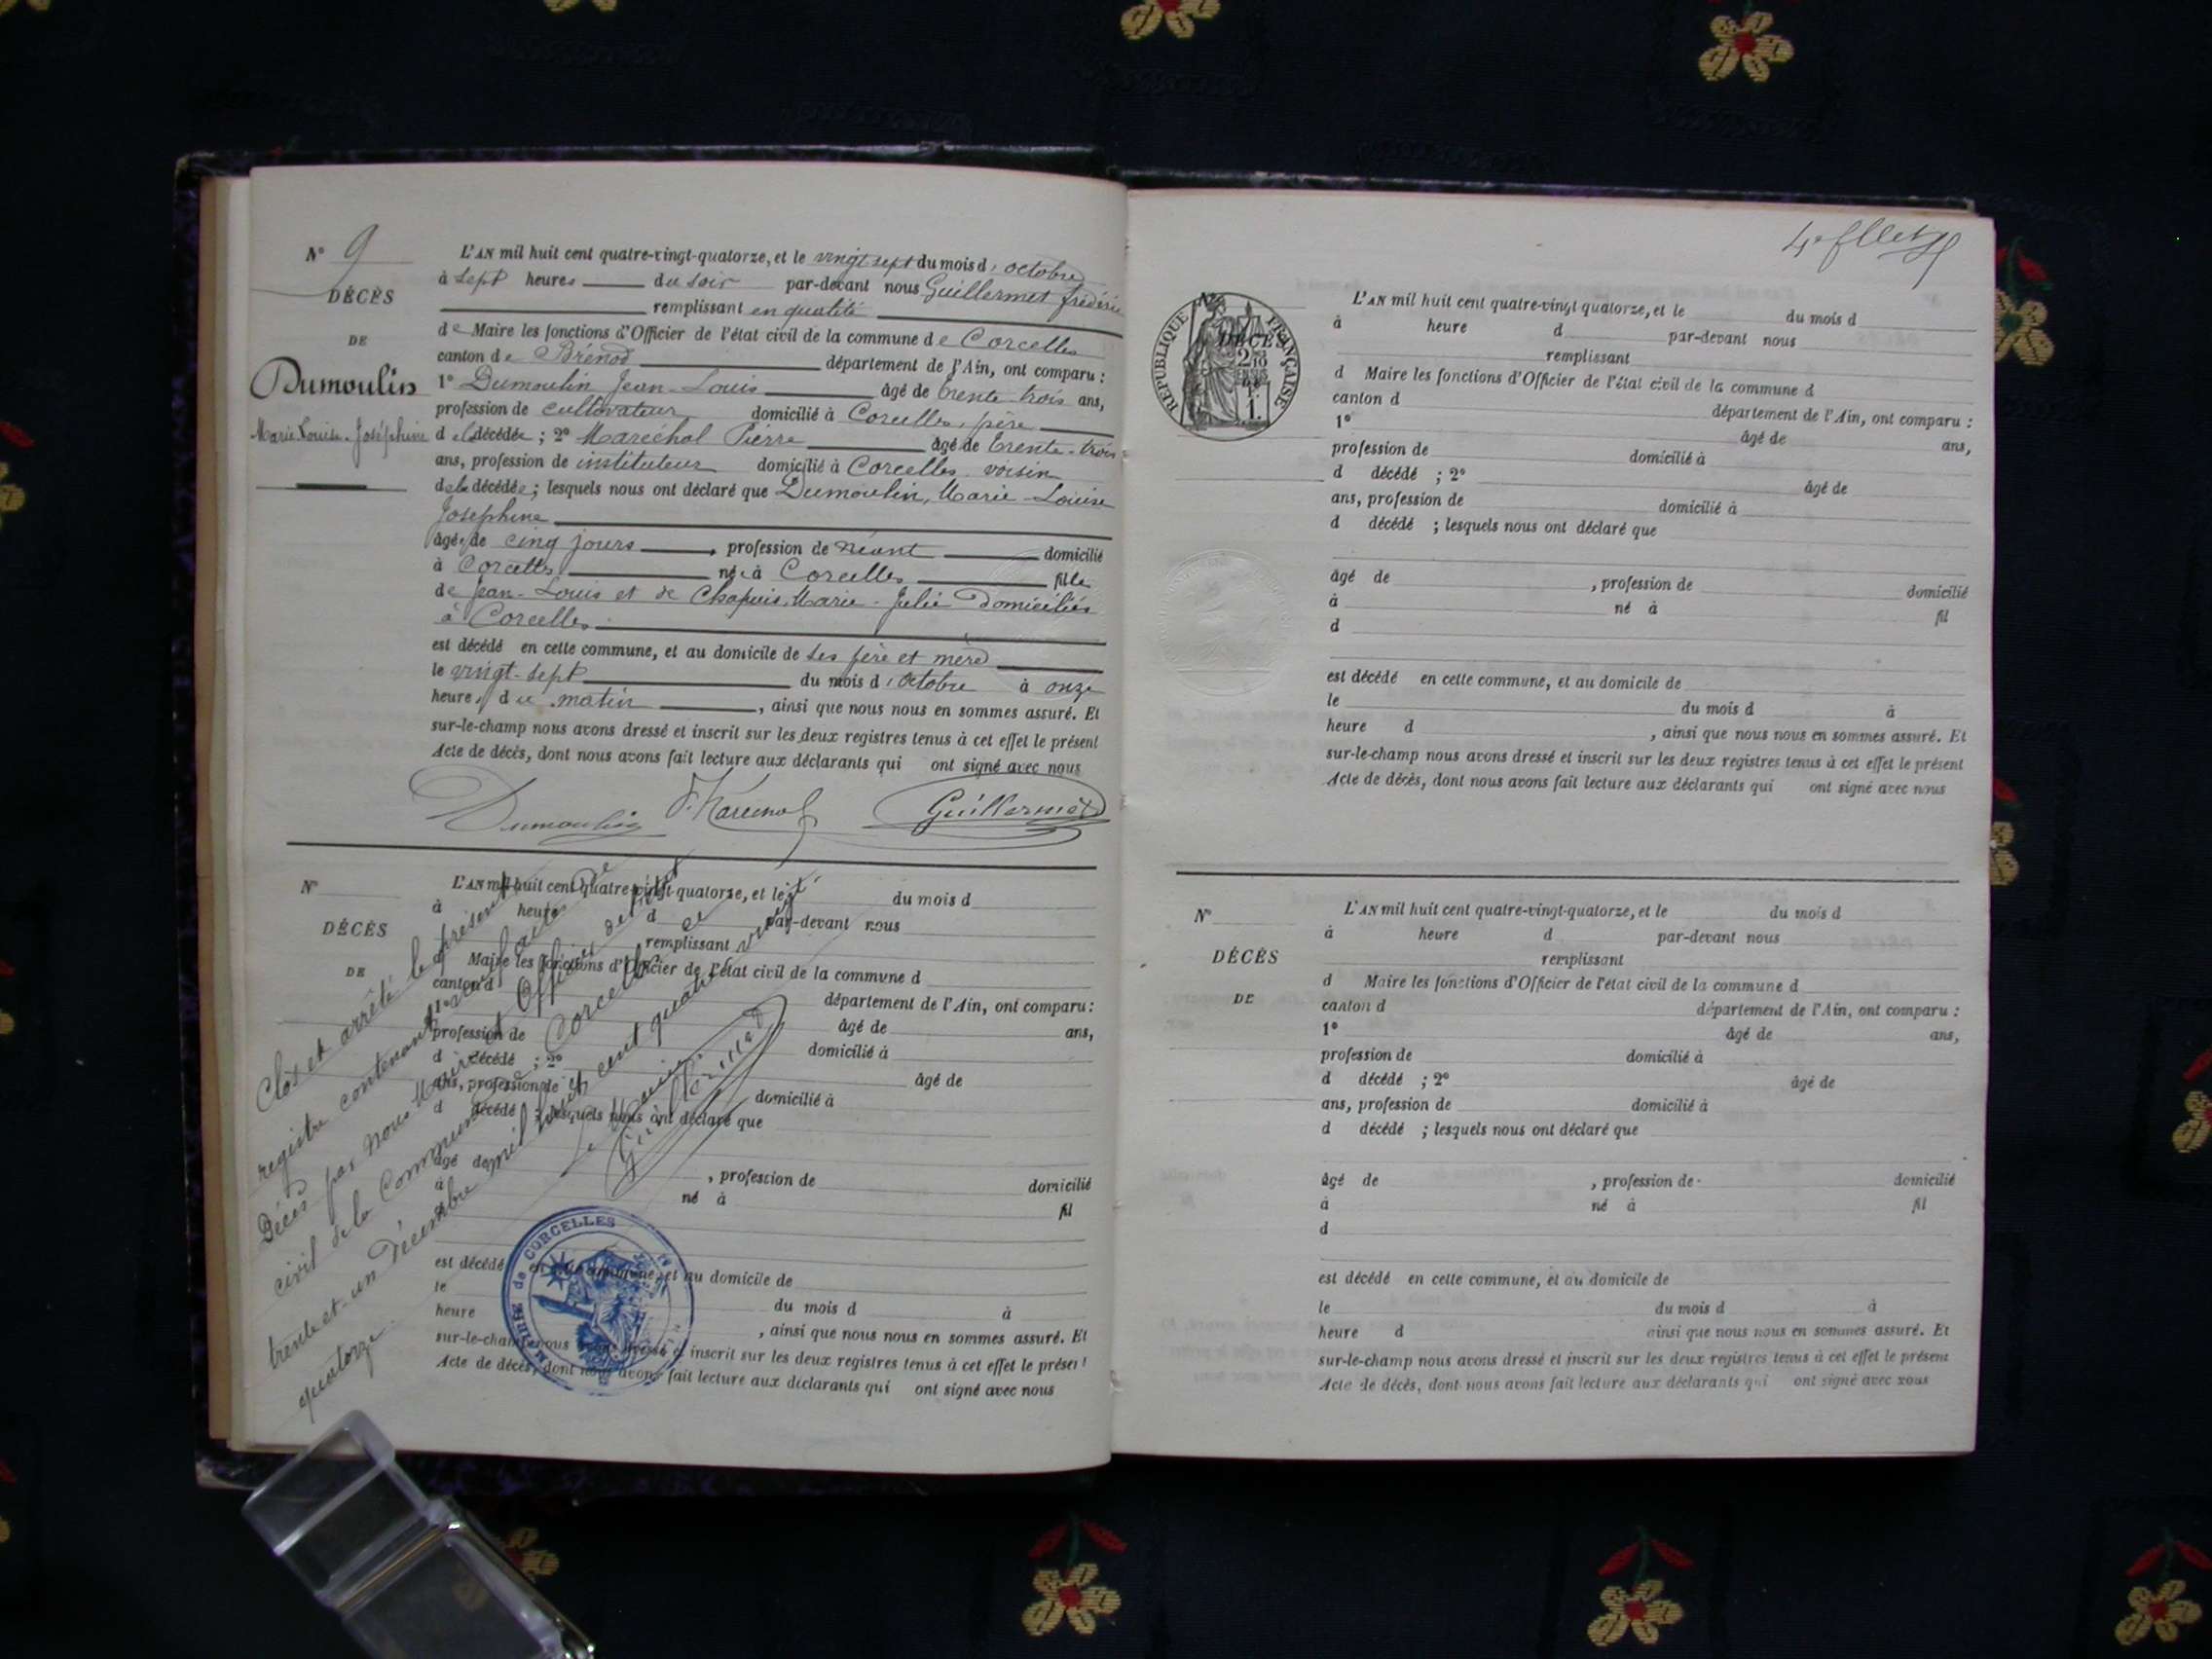 N° 9
DÉCÈS
DE
Dumoulin
Marie Louise-Joséphine
L'AN mil huit cent quatre-vingt-quatorze, et le vingt sept du mois d'octobre
à sept heures du soir par-devant nous Guillermet frédéric
remplissant en qualité
de Maire les fonctions d'Officier de l'état civil de la commune de Corcelles
canton de Brénod département de l'Ain, ont comparu :
1° Dumoulin Jean-Louis âgé de trente-trois ans,
profession de cultivateur domicilié à Corcelles, père
de la décédée ; 2° Maréchal Pierre âgé de trente-trois
ans, profession de instituteur domicilié à Corcelles voisin
de la décédée ; lesquels nous ont déclaré que Dumoulin, Marie-Louise
Joséphine
âgée de cinq jours, profession de néant domicilié
à Corcelles née à Corcelles fille
de Jean-Louis et de Chapuis, Marie-Julie domiciliés
à Corcelles
est décédé en cette commune, et au domicile de ses père et mère
le vingt-sept du mois d'octobre à onze
heures du matin, ainsi que nous nous en sommes assuré. Et
sur-le-champ nous avons dressé et inscrit sur les deux registres tenus à cet effet le présent
Acte de décès, dont nous avons fait lecture aux déclarants qui ont signé avec nous
Dumoulin Guillermet
N°
DÉCÈS
DE
L'AN mil huit cent quatre-vingt-quatorze, et le du mois d
à heure d par-devant nous
remplissant
d Maire les fonctions d'Officier de l'état civil de la commune d
canton d département de l'Ain, ont comparu :
1° âgé de ans,
profession de domicilié à
d décédé ; 2° âgé de
ans, profession de domicilié à
d décédé ; lesquels nous ont déclaré que
âgé de , profession de domicilié
à né à fil
est décédé en cette commune, et au domicile de
le du mois d à
heure , ainsi que nous nous en sommes assuré. Et
sur-le-champ nous avons dressé et inscrit sur les deux registres tenus à cet effet le présent
Acte de décès, dont nous avons fait lecture aux déclarants qui ont signé avec nous
Clos et arrêté le présent
registre contenant neuf actes de
Décès par nous Maire et Officier de l'état
civil de la Commune de Corcelles le
trente et un Décembre mil huit cent quatre vingt
quatorze.
Le Maire
Guillermet
MAIRIE de CORCELLES
RÉPUBLIQUE FRANÇAISE
N°
DÉCÈS
L'AN mil huit cent quatre-vingt quatorze, et le du mois d
à heure d par-devant nous
remplissant
d Maire les fonctions d'Officier de l'état civil de la commune d
canton d département de l'Ain, ont comparu :
1° âgé de ans,
profession de domicilié à
d décédé ; 2° âgé de
ans, profession de domicilié à
d décédé ; lesquels nous ont déclaré que
âgé de , profession de domicilié
à né à fil
d
est décédé en cette commune, et au domicile de
le du mois d à
heure d , ainsi que nous nous en sommes assuré. Et
sur-le-champ nous avons dressé et inscrit sur les deux registres tenus à cet effet le présent
Acte de décès, dont nous avons fait lecture aux déclarants qui ont signé avec nous
N°
DÉCÈS
DE
L'AN mil huit cent quatre-vingt-quatorze, et le du mois d
à heure d par-devant nous
remplissant
d Maire les fonctions d'Officier de l'état civil de la commune d
canton d département de l'Ain, ont comparu :
1° âgé de ans,
profession de domicilié à
d décédé ; 2° âgé de
ans, profession de domicilié à
d décédé ; lesquels nous ont déclaré que
âgé de , profession de domicilié
à né à fil
d
est décédé en cette commune, et au domicile de
le du mois d à
heure d ainsi que nous nous en sommes assuré. Et
sur-le-champ nous avons dressé et inscrit sur les deux registres tenus à cet effet le présent
Acte de décès, dont nous avons fait lecture aux déclarants qui ont signé avec nous